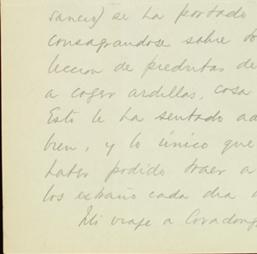 sancio) se ha portado
consagrandose sobre to
lección de piedritas de
a coger ardillas, cosa
Esto le ha sentado ad
bien, y lo único que
haber podido traer a
los extraño cada dia
Mi viaje a Covadong